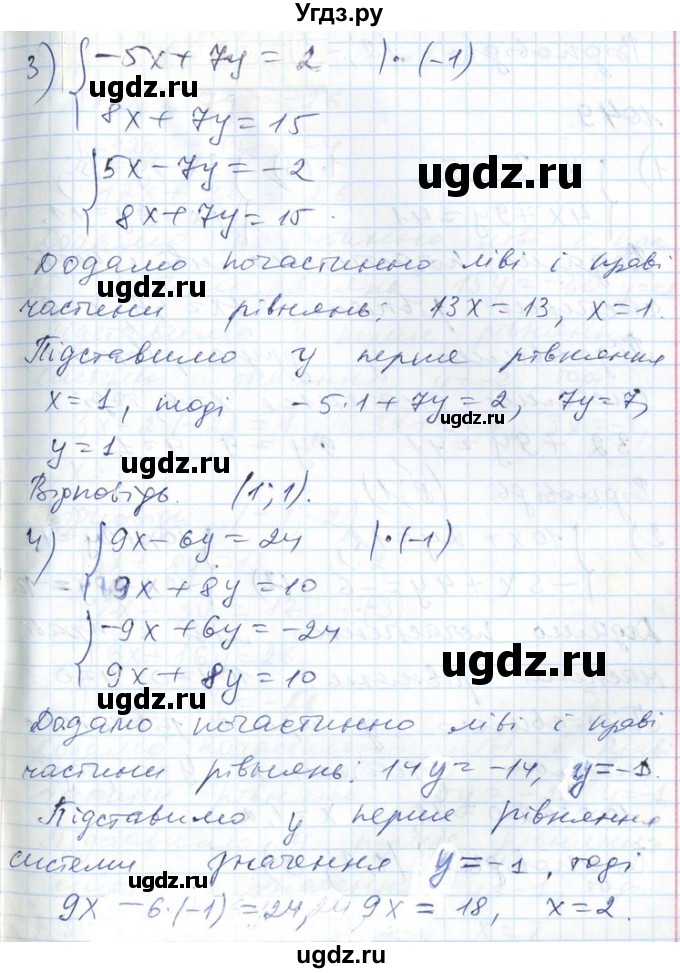 Угдз.ру
3) { -5x + 7y = 2 | · (-1)
8x + 7y = 15
{ 5x - 7y = -2
8x + 7y = 15.
Додамо почастинно ліві і праві
частини рівнянь: 13x = 13, x = 1.
Підставимо у перше рівняння
x = 1, тоді -5·1 + 7y = 2, 7y = 7,
y = 1
Відповідь. (1; 1).
4) { 9x - 6y = 24 | · (-1)
9x + 8y = 10
{ -9x + 6y = -24
9x + 8y = 10
Додамо почастинно ліві і праві
частини рівнянь: 14y = -14, y = -1.
Підставимо у перше рівняння
системи значення y = -1, тоді
9x - 6·(-1) = 24, 9x = 18, x = 2.
ugdz.ru
ugdz.ru
ugdz.ru
ugdz.ru
ugdz.ru
ugdz.ru
ugdz.ru
ugdz.ru
ugdz.ru
ugdz.ru